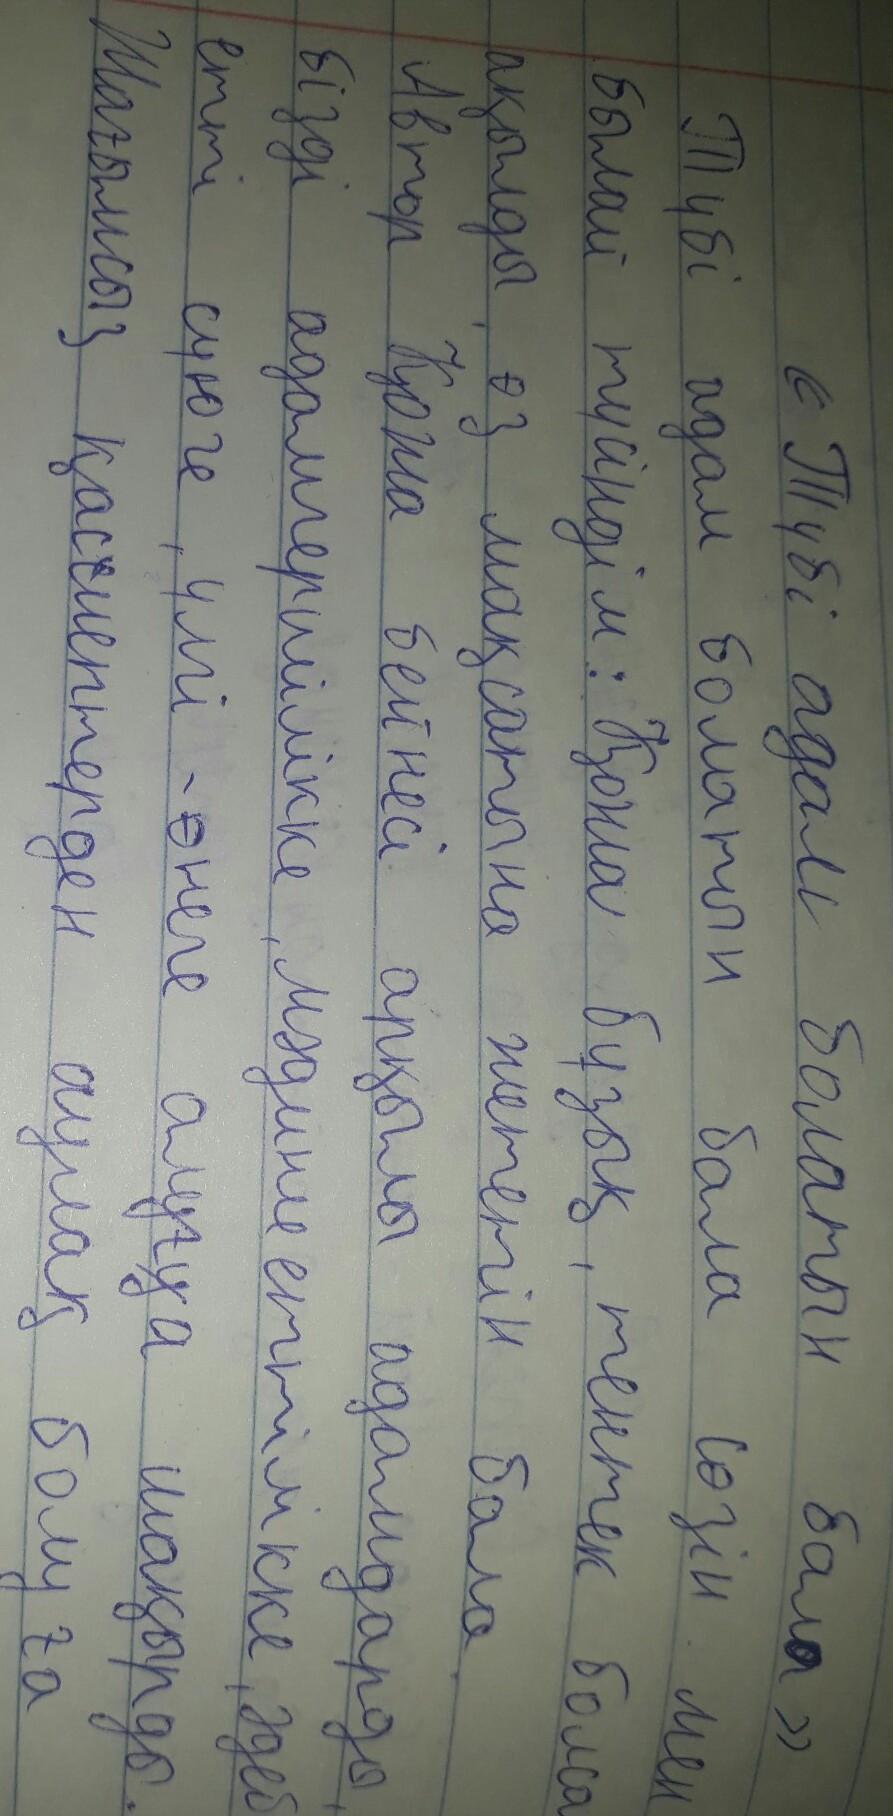 «Түбі адам болатын бала»
Түбі адам болатын бала сөзін мен
былай түсіндім: Қожа бұзық, тентек болса
ақылды, өз мақсатына жететін бала.
Автор Қожа бейнесі арқылы адамдарды,
бізді адамгершілікке, мәдениеттілікке, әдеб
етті сүюге, үлгі-өнеге алуға шақырды.
Жағымсыз қасиеттерден аулақ болуға